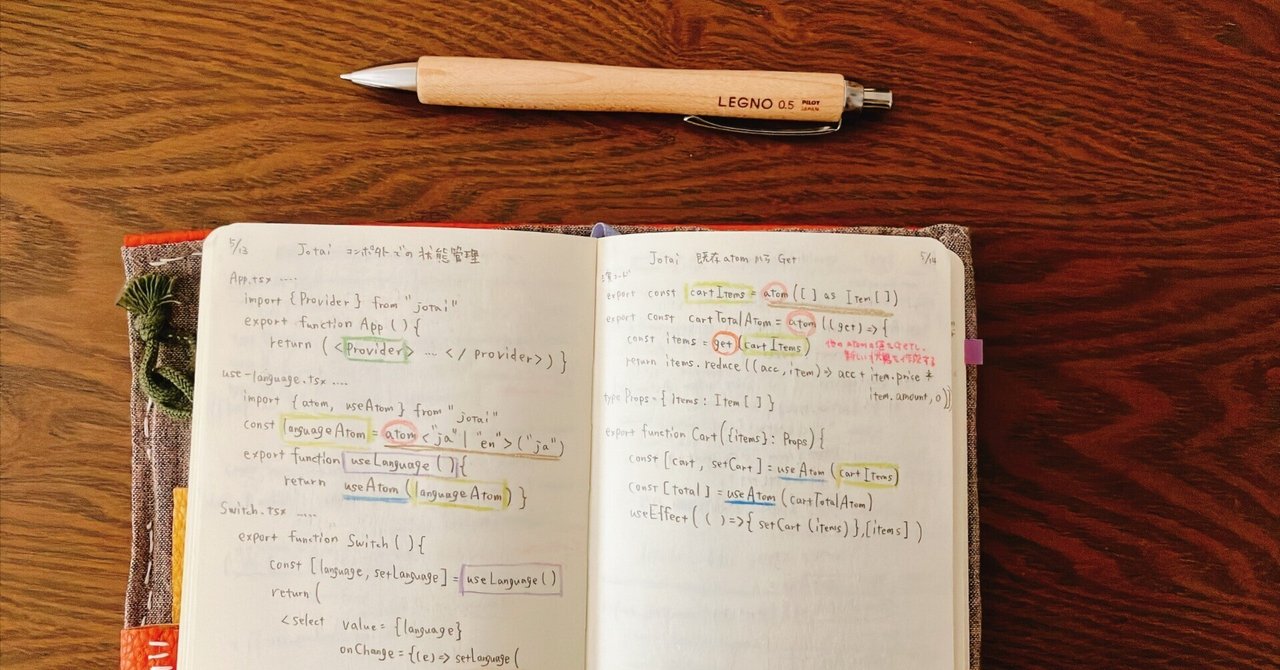 LEGNO 0.5 PILOT JAPAN
5/13 Jotai コンポクトズの状態管理
App.tsx ....
import {Provider} from "jotai"
export function App ( ) {
return ( <Provider> … </ provider> ) }
use-language.tsx ....
import {atom, useAtom} from "jotai"
const languageAtom = atom <"ja" | "en"> ("ja")
export function useLanguage ( ) {
return useAtom ( languageAtom ) }
Switch.tsx ....
export function Switch ( ) {
const [language, setLanguage] = useLanguage ( )
return (
<select value = {language}
onChange = {(e) => setLanguage (
Jotai 既存atomから Get 5/14
export const cartItems = atom ([ ] as Item [ ])
export const cartTotalAtom = atom ((get) => {
const items = get (cartItems)
他のatomの値をgetし、
新しい状態を作成する
return items.reduce ((acc, item) => acc + item.price *
item.amount, 0 )}
type Props = { Items : Item [ ] }
export function Cart ({items} : Props) {
const [cart, setCart] = useAtom (cartItems)
const [total] = useAtom (cartTotalAtom)
useEffect ( ( ) => { setCart (items) }, [items] )